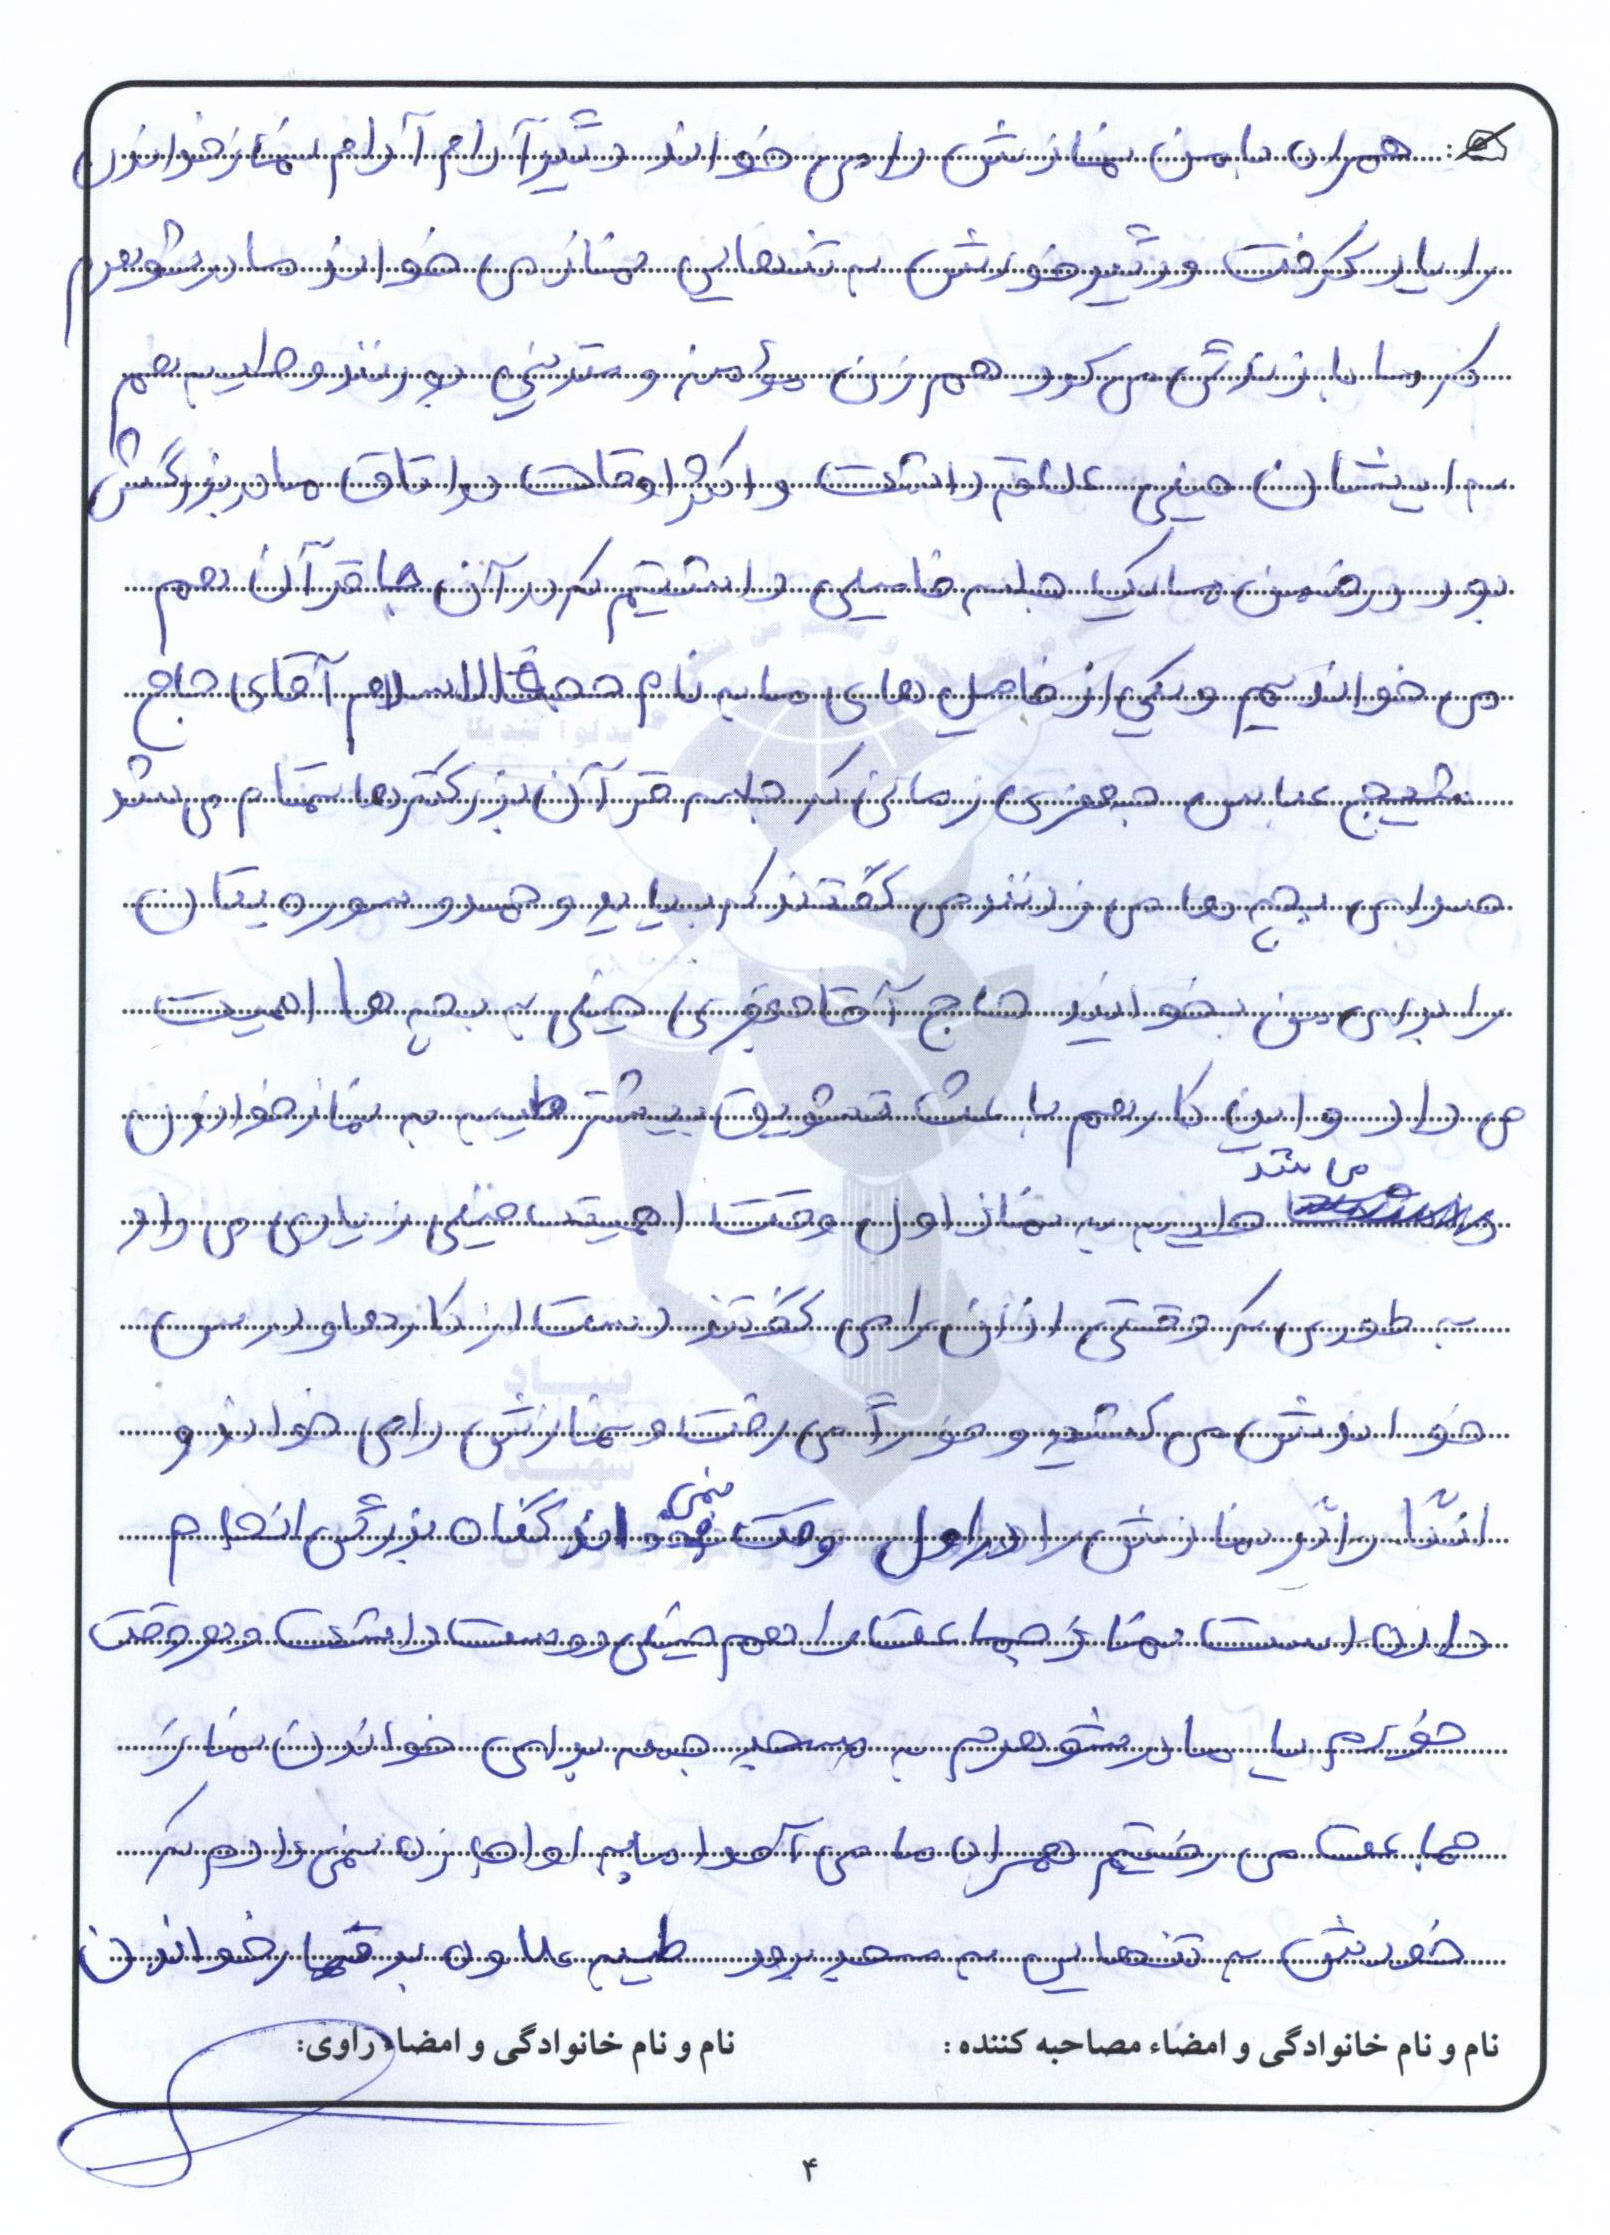 همراه با من نمازش را می خواند دیگر آرام آرام نماز خواندن
را یاد گرفت و دیگر خودش به تنهایی نماز می خواند مادرشوهرم
که با ما زندگی می کرد هم زن مؤمنه و متدینی بودند و طیبه هم
به ایشان خیلی علاقه داشت و اکثر اوقات در اتاق مادربزرگش
بود در ضمن ما یک جلسه فامیلی داشتیم که در آن جا قرآن هم
می خواندیم و یکی از فامیل های ما به نام حجة الاسلام آقای حاج
شیخ عباس جعفری زمانی که جلسه قرآن بزرگترها تمام می شد
صدای بچه ها می زدند می گفتند که بیاید و حمد و سوره یتان
را برای من بخوانید حاج آقا جعفری خیلی به بچه ها اهمیت
می داد و این کار هم باعث تشویق بیشتر طیبه به نماز خواندن
می شد
طیبه به نماز اول وقت اهمیت خیلی زیادی می داد
به طوری که وقتی اذان را می گفتند دست از کارها و درس
خواندنش می کشید و فوراً می رفت و نمازش را می خواند و
انگار اگر نمازش را در اول وقت نمی خواند گناه بزرگی انجام
داده است نماز جماعت را هم خیلی دوست داشت و هر وقت
خودم یا مادرشوهرم به مسجد جمعه برای خواندن نماز
جماعت می رفتیم همراه ما می آمد اما به او اجازه نمی دادم که
خودش به تنهایی به مسجد برود طیبه علاوه بر نماز خواندن
نام و نام خانوادگی و امضاء مصاحبه کننده : نام و نام خانوادگی و امضاء راوی:
۴